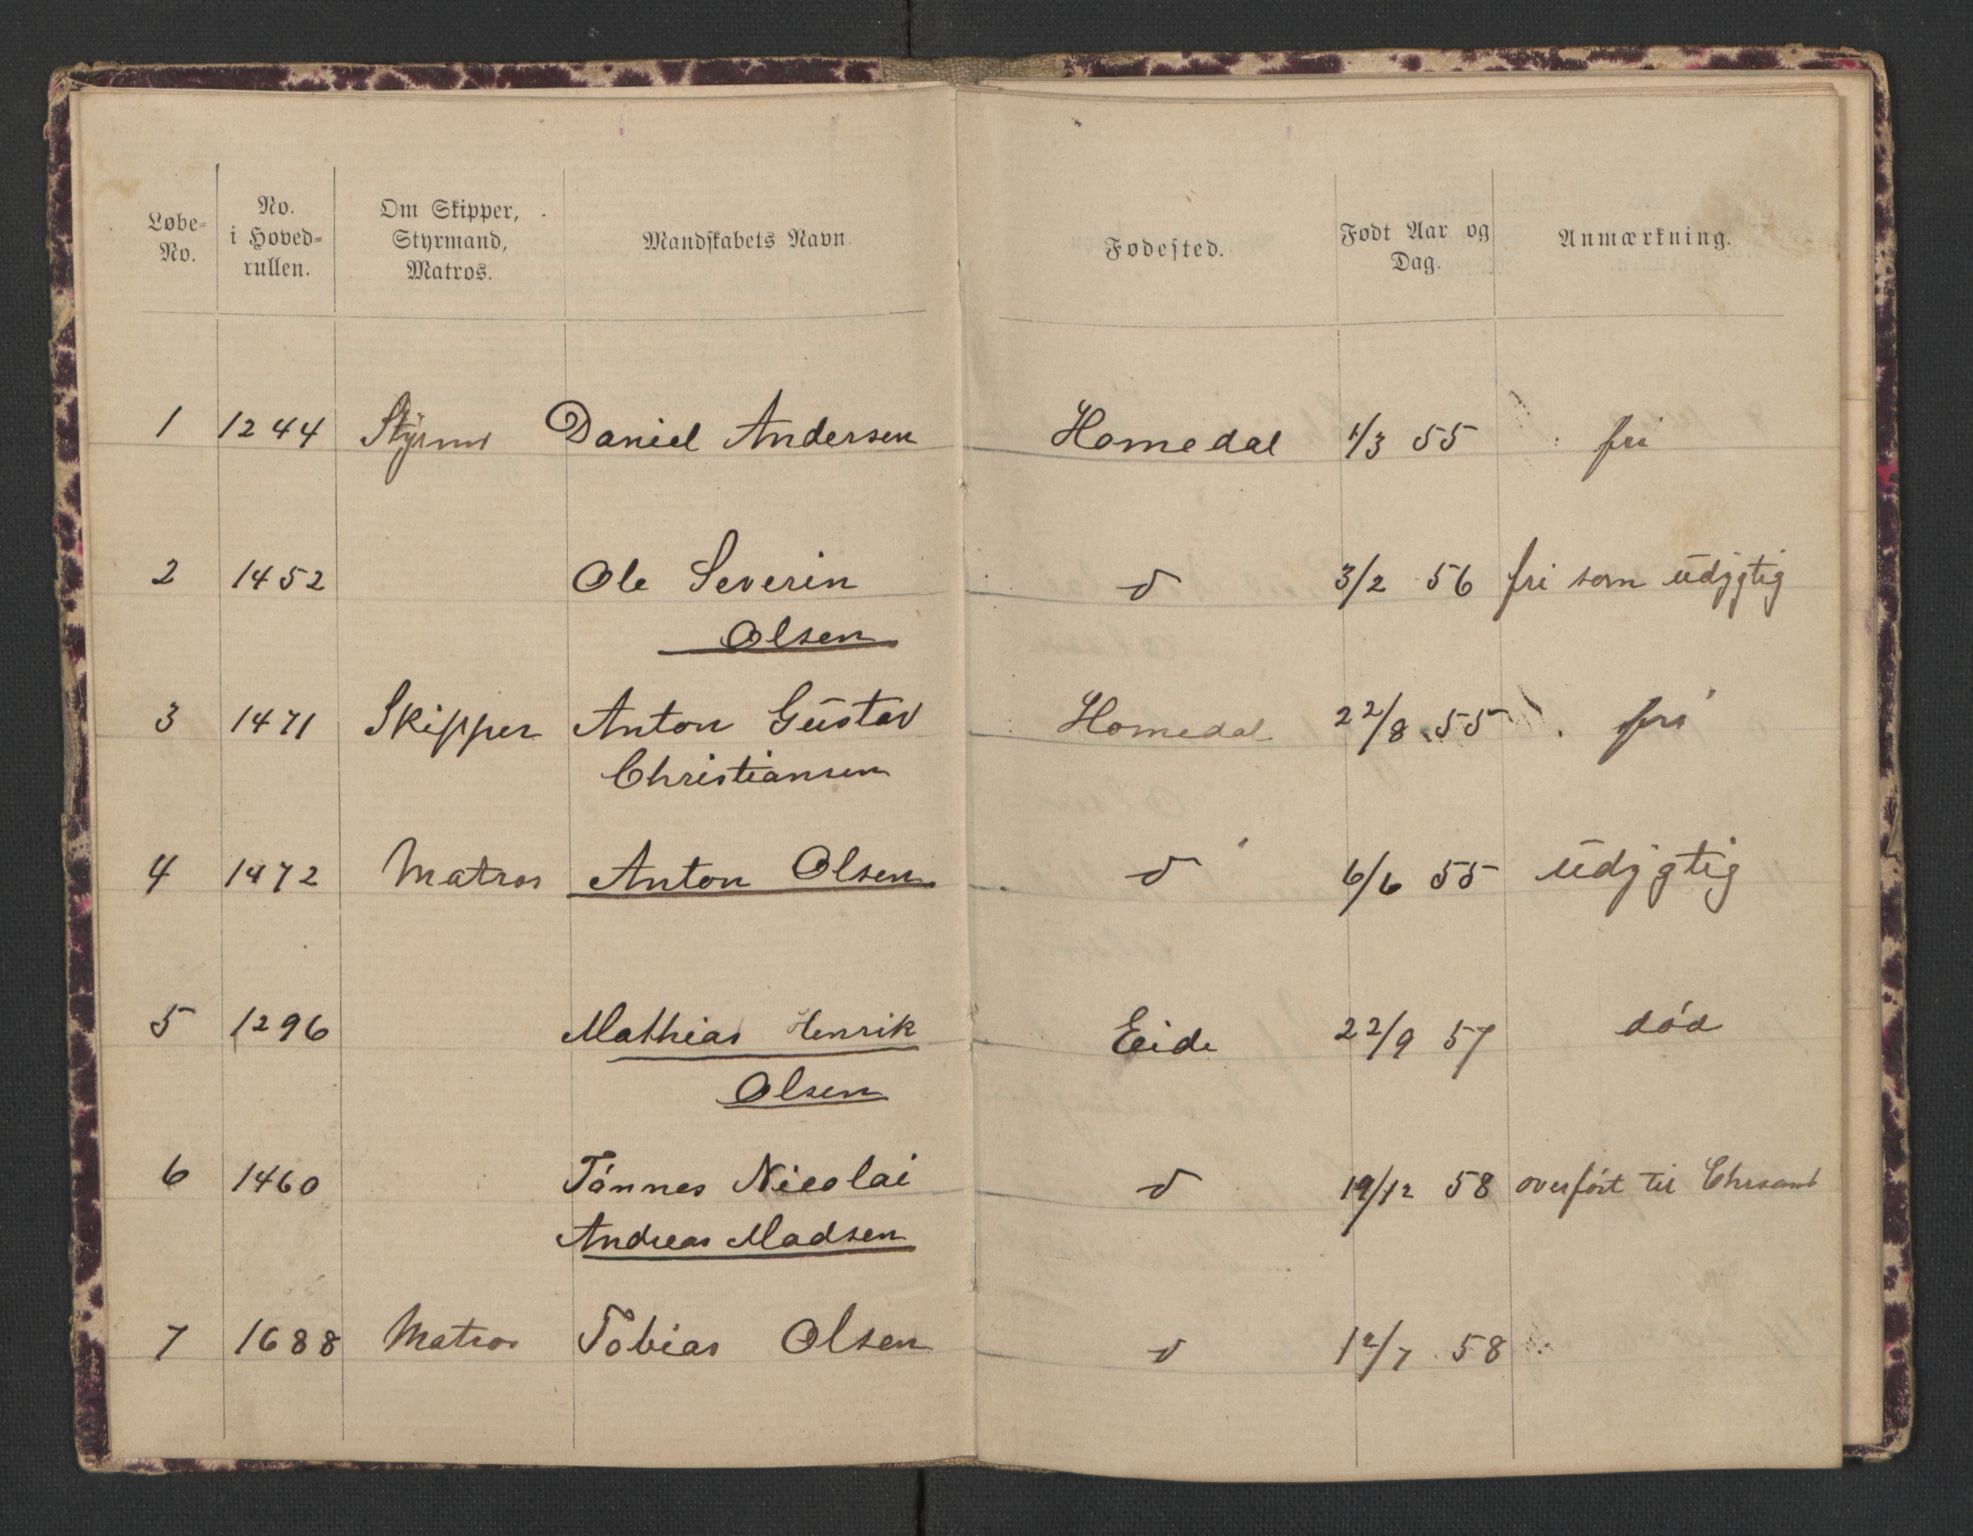 Løbe-No. No. i Hoved-rullen. Om Skipper, Styrmand, Matros. Mandskabets Navn. Fødested. Født Aar og Dag. Anmærkning.
1 1244 Styrm Daniel Andersen Homedal 1/3 55 fri
2 1452 Ole Severin d 3/2 56 fri som udygtig
Olsen
3 1471 Skipper Anton Gustav Homedal 22/8 55 fri
Christiansen
4 1472 Matros Anton Olsen d 6/6 55 udygtig
5 1296 Mathias Henrik Eide 22/9 57 död
Olsen
6 1460 Tönnes Nicolai d 19/12 58 overfört til Chrsand
Andreas Madsen
7 1688 Matros Tobias Olsen d 12/7 58